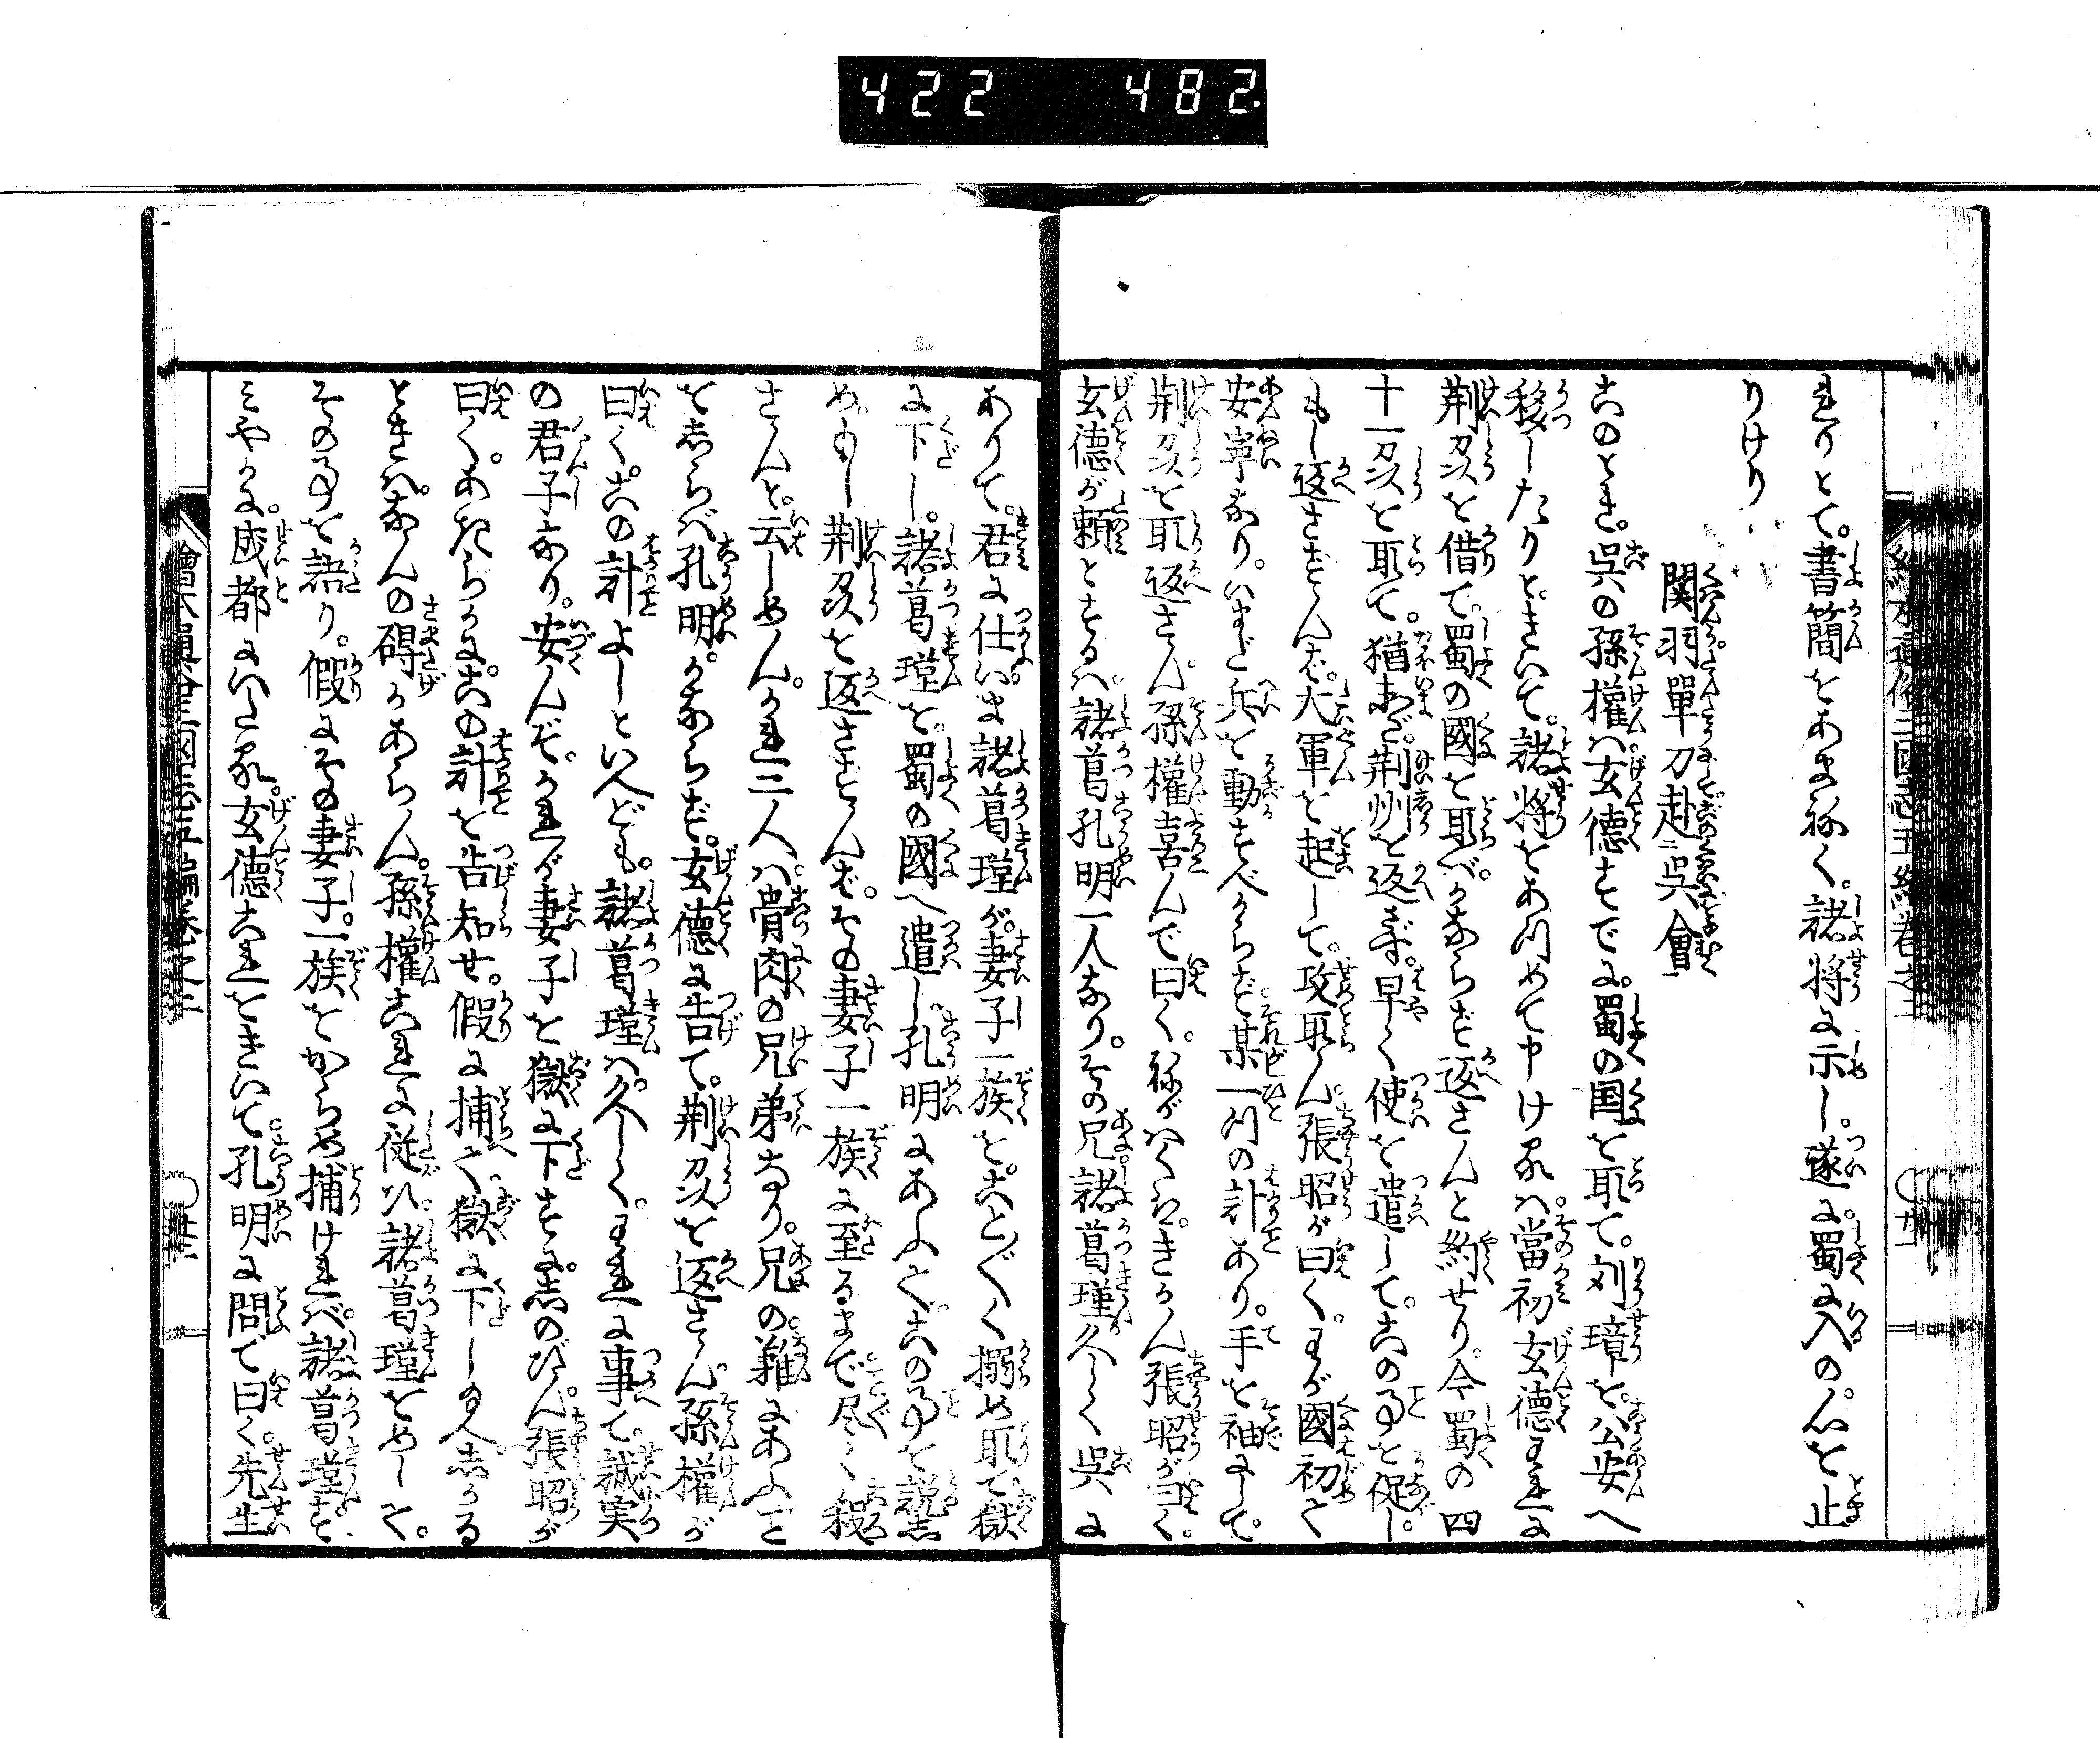 422 482
れりとて。書簡をあまねく。諸将に示し。遂に蜀に入の心を止
りけり
関羽單刀赴呉會
このとき。呉の孫權ハ玄徳すでに。蜀の国を取て。刘璋を。公安へ
移したりと。きいて。諸将をあつめて申けるハ當初玄徳われに
荆州を借て。蜀の國を取バ。かならず返さんと約せり。今蜀の四
十一州を取て。猶まだ。荆州を返さず。早く使を遣して。此の事を促し。
もし返さずんバ。大軍を起して。攻取ん。張昭が曰く。わが國初て
安寧なり。いまだ兵を動すべからず某一つの計あり。手を袖にして。
荆州を取返さん。孫權喜んで曰く。ねがハくハ。きかん張昭が曰く。
玄徳が頼とするハ。諸葛孔明一人なり。その兄諸葛瑾久しく呉に
ありて。君に仕いま諸葛瑾が。妻子一族を。ことごとく搦め取て。獄
に下し。諸葛瑾を。蜀の國へ遣し。孔明にあふて。この事を説し
め。もし荆州を返さずんバ。その妻子一族に至るまで。尽く殺
さんと。云しめん。かれ二人ハ。骨肉の兄弟なり。兄の難にあふこと
をしらバ孔明。かならず。玄徳に告て。荆州を返さん。孫權が
曰く。この計よしといへども。諸葛瑾ハ。久しく。われに事て。誠実
の君子なり。安んぞ。かれが妻子を獄に下すに。しのびん。張昭が
曰く。あきらかに。この計を告知せ。假に捕て。獄に下し給へ。しかる
ときハ。なんの碍かあらん。孫權これに従ひ。諸葛瑾をめして。
その事を語り。假にその妻子。一族をからめ捕けれバ。諸葛瑾す
ミやかに。成都にいたる。玄徳これをきいて。孔明に問て曰く。先生